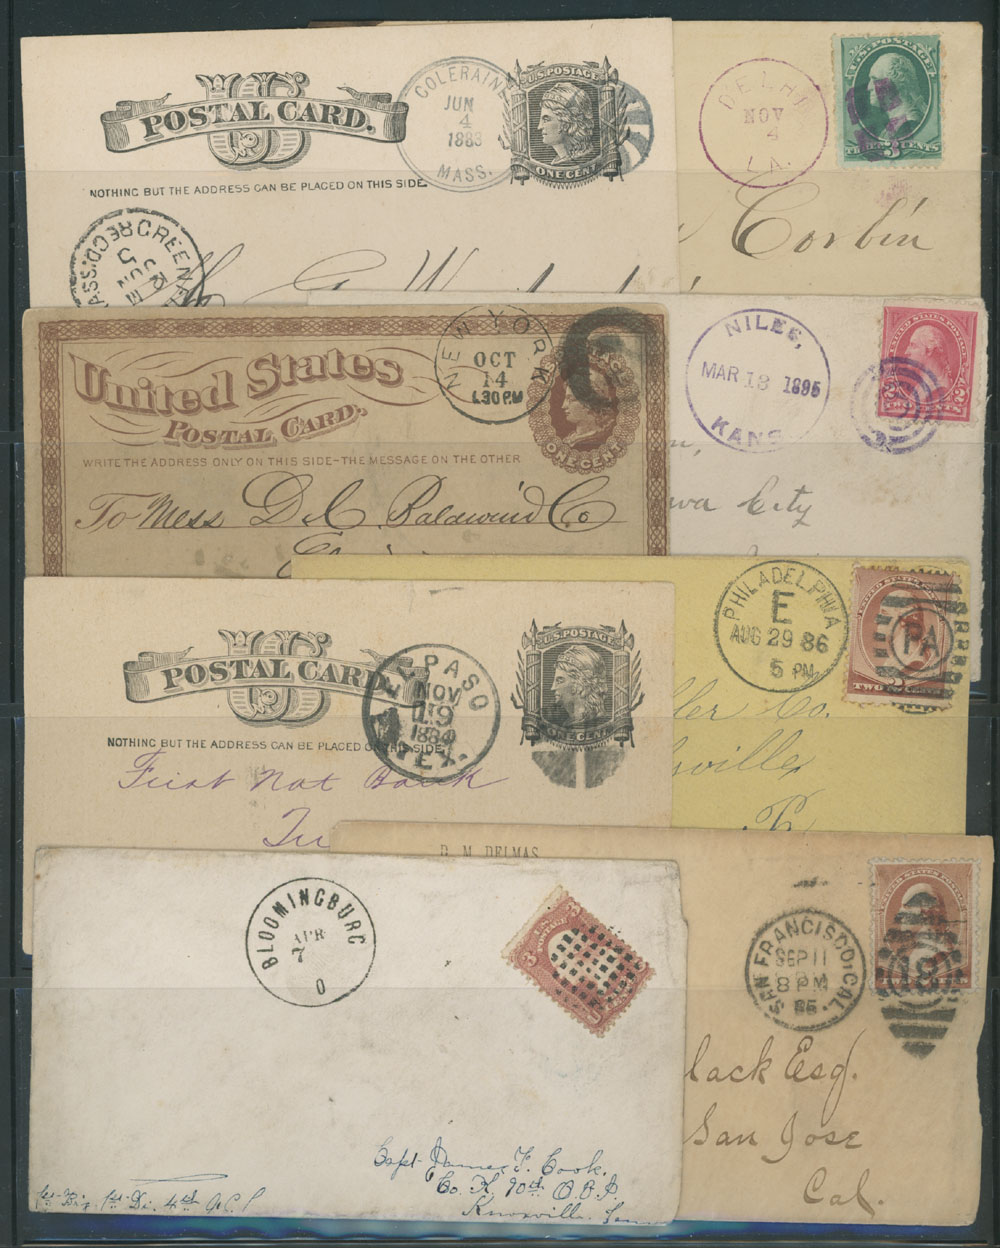 U S
POSTAL CARD.
NOTHING BUT THE ADDRESS CAN BE PLACED ON THIS SIDE.
COLERAINE
JUN
4
1883
MASS.
U.S. POSTAGE
ONE CENT
REC'D.
JUN
5
DELHI
NOV
4
LA.
U.S. POSTAGE
THREE 3 CENTS
Corbin
United States
POSTAL CARD.
WRITE THE ADDRESS ONLY ON THIS SIDE-THE MESSAGE ON THE OTHER
NEW YORK
OCT
14
1.30 PM
ONE CENT
To Mess D. C. Baldwin & Co
NILES,
MAR 13 1895
KANS
2 2
TWO CENTS
City
U S
POSTAL CARD.
NOTHING BUT THE ADDRESS CAN BE PLACED ON THIS SIDE.
EL PASO
NOV
19
1884
TEX.
U.S. POSTAGE
ONE CENT
First Nat Bank
PHILADELPHIA
E
AUG 29 86
5 PM
PA
TWO
ler Co.
sville
D. M. DELMAS
BLOOMINGBURG
APR
7
O
3
POSTAGE
Capt James F. Cook.
Co. K, 90th O. V. I
Knoxville, Tenn
1st Brig. 1st Di. 4th A. C.
SAN FRANCISCO, CAL.
SEP 11
8 PM
18
lack Esq.
San Jose
Cal.